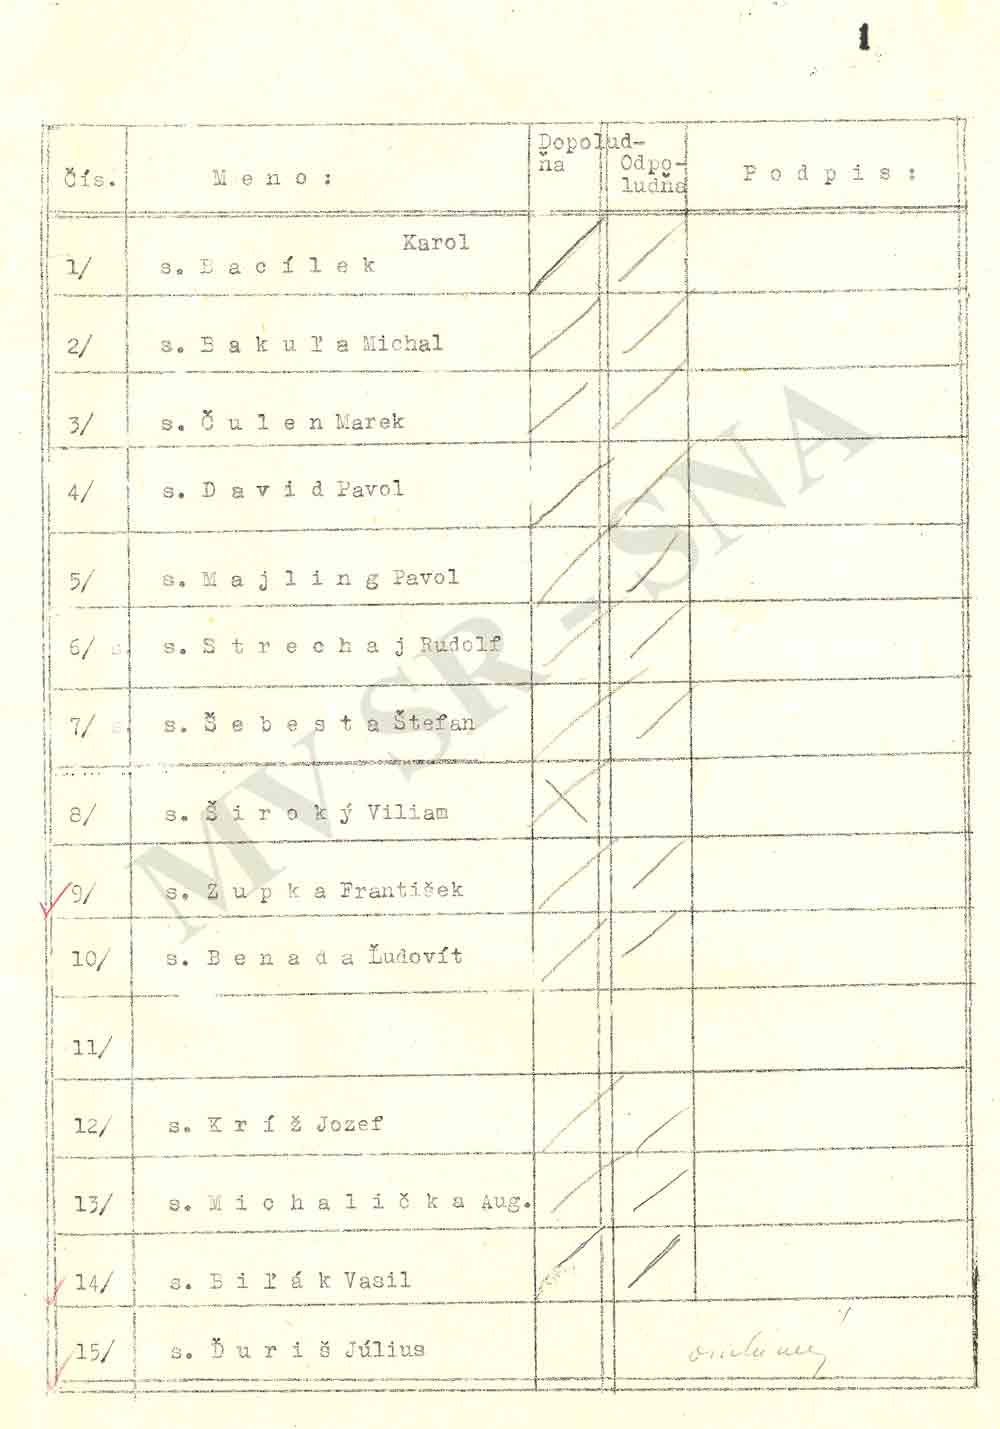 1
Čís. M e n o : Dopolud-
ňa Odpo-
ludňa P o d p i s :
Karol
1/ s. B a c í l e k
2/ s. B a k u ľ a Michal
3/ s. Č u l e n Marek
4/ s. D a v i d Pavol
5/ s. M a j l i n g Pavol
6/ s. S t r e c h a j Rudolf
7/ s. Š e b e s t a Štefan
8/ s. Š i r o k ý Viliam
9/ s. Z u p k a František
10/ s. B e n a d a Ľudovít
11/
12/ s. K r í ž Jozef
13/ s. M i c h a l i č k a Aug.
14/ s. B i ľ á k Vasil
15/ s. Ď u r i š Július
MV SR - SNA